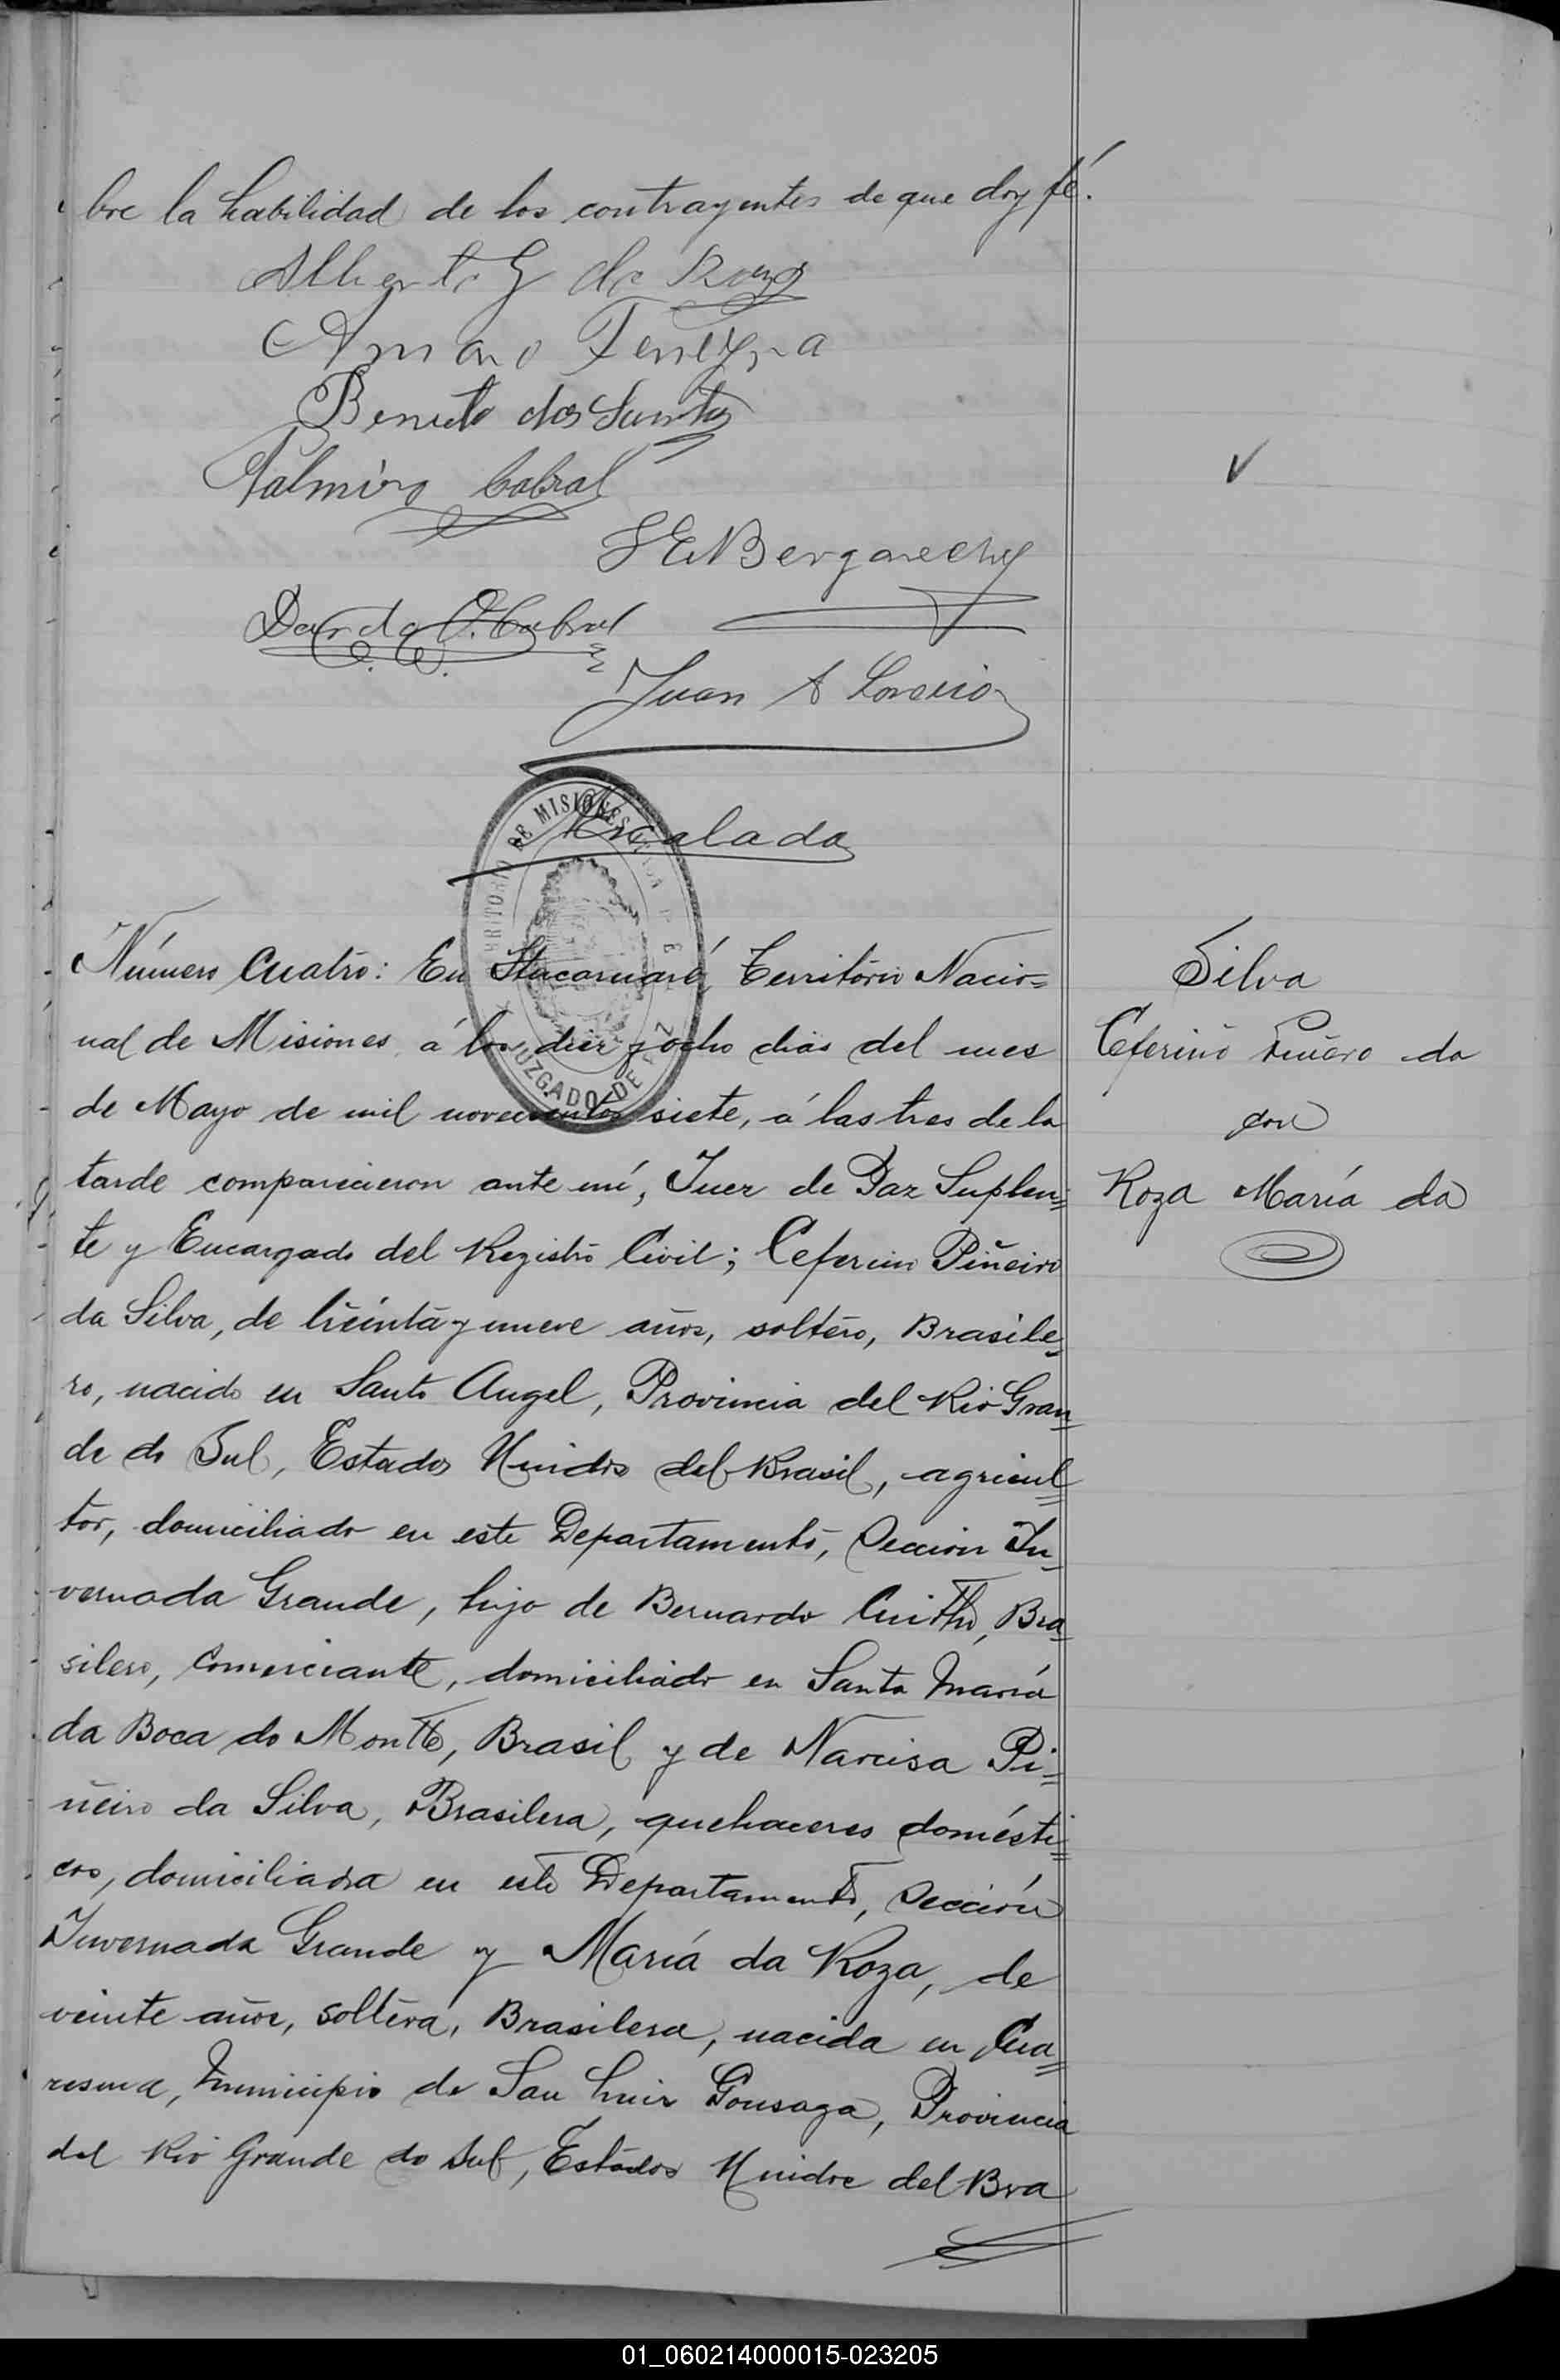 bre la habilidad de los contrayentes de que doy fé.
Alberto G de Roza
Amaro Ferreyra
Benito dos Santos
Palmiro Cabral
S E Bergareche
Dardo O. Cabral
Juan A Loreiro
Escalada
TERRITORIO DE MISIONES
JUZGADO DE PAZ
Número Cuatro: En Itacaruaré, Territorio Nacio=
nal de Misiones, á los diez y ocho dias del mes
de Mayo de mil novecientos siete, á las tres de la
tarde comparecieron ante mí, Juez de Paz Suplen=
te y Encargado del Registro Civil; Ceferino Piñeiro
da Silva, de treinta y nueve años, soltero, Brasile=
ro, nacido en Santo Angel, Provincia del Rio Gran=
de do Sul, Estados Unidos del Brasil, agricul=
tor, domiciliado en este Departamento, Sección In=
vernada Grande, hijo de Bernardo Bra=
silero, comerciante, domiciliado en Santa María
da Boca do Montte, Brasil y de Narcisa Pi=
ñeiro da Silva, Brasilera, quehaceres domésti=
cos, domiciliada en este Departamento, Sección
Invernada Grande y María da Roza, de
veinte años, soltera, Brasilera, nacida en Cua=
resma, Municipio de San Luis Gonsaga, Provincia
del Rio Grande do Sul, Estados Unidos del Bra
Silva
Ceferino Piñero da
con
Roza María da
01_060214000015-023205